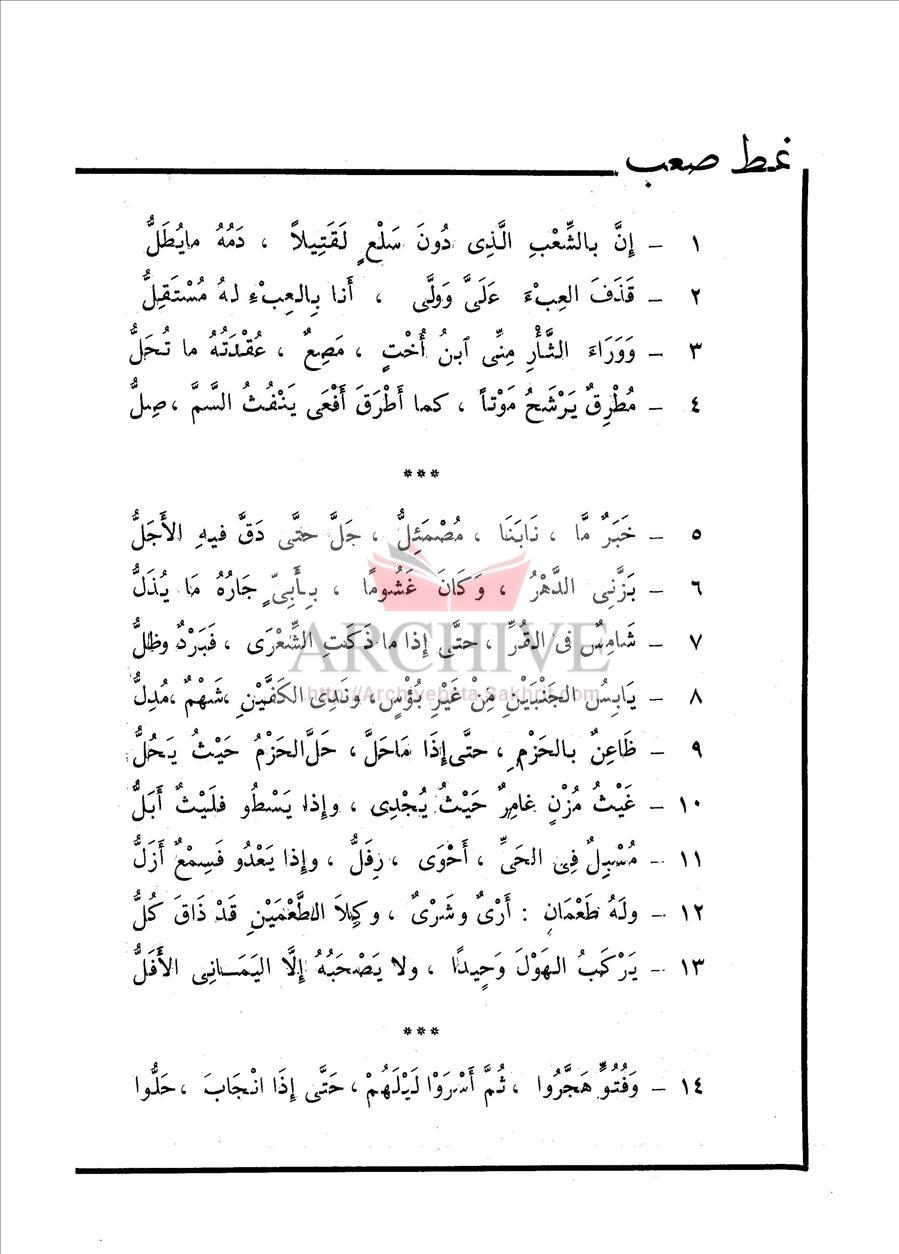 نمط صعب
١ – إِنَّ بالشِّعْبِ الَّذِى دُونَ سَلْعٍ لَقَتِيلاً ، دَمُهُ مايُطَلُّ
٢ – قَذَفَ العِبْءَ عَلَىَّ وَوَلَّى ، أَنا بِالعِبْءِ لهُ مُسْتَقِلُّ
٣ – وَوَرَاءَ الثَّأْرِ مِنِّى ٱبنُ أُخْتٍ ، مَصِعٌ ، عُقْدَتُهُ ما تُحَلُّ
٤ – مُطْرِقٌ يَرْشَحُ مَوْتاً ، كما أَطْرَقَ أَفْعَى يَنْفُثُ السَّمَّ ، صِلُّ
***
٥ – خَبَرٌ مَّا ، نَابَنَا ، مُصْمَئِلُّ ، جَلَّ حتَّى دَقَّ فيهِ الأَجَلُّ
٦ – بَزَّنِى الدَّهْرُ ، وَكَانَ غَشُومًا ، بِأَبِىٍّ جَارُهُ مَا يُذَلُّ
٧ – شَامِسٌ فى القُرِّ ، حتَّى إِذا ما ذَكَتِ الشِّعْرَى ، فَبَرْدٌ وظلُّ
ARCHIVE
http://Archivebeta.Sakhrit.com
٨ – يَابِسُ الجَنْبَيْنِ مِنْ غَيْرِ بُؤْسٍ، ونَدِى الكَفَّيْنِ ،شَهْمٌ ،مُدِلُّ
٩ – ظَاعِنٌ بالحَزْمِ ، حتَّى إِذَا مَاحَلَّ ، حَلَّ الحَزْمُ حَيْثُ يَحُلُّ
١٠ – غَيْثُ مُزْنٍ غامِرٌ حَيْثُ يُجْدِى ، وإِذا يَسْطُو فلَيْثٌ أَبَلُّ
١١ – مُسْبِلٌ فى الحَىِّ ، أَحْوَى ، رِفَلُّ ، وإِذا يَعْدُو فَسِمْعٌ أَزَلُّ
١٢ – ولَهُ طَعْمَانِ : أَرْىٌ وشَرْىٌ ، وكِلاَ الطَّعْمَيْنِ قَدْ ذَاقَ كُلُّ
١٣ – يَرْكَبُ الهَوْلَ وَحِيدًا ، ولا يَصْحَبُهُ إِلَّا اليَمَانِى الأَفَلُّ
***
١٤ – وَفُتُوٌّ هَجَّرُوا ، ثُمَّ أَسْرَوْا لَيْلَهُمْ ، حَتَّى إِذَا انْجَابَ ، حَلُّوا